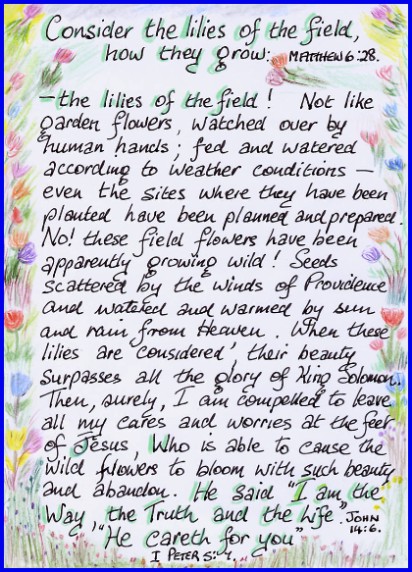 Consider the lilies of the field,
how they grow: MATTHEW 6:28.
– the lilies of the field! Not like
garden flowers, watched over by
human hands; fed and watered
according to weather conditions –
even the sites where they have been
planted have been planned and prepared.
No! these field flowers have been
apparently growing wild! Seeds
scattered by the winds of Providence
and watered and warmed by sun
and rain from Heaven. When these
lilies are 'considered', their beauty
surpasses all the glory of King Solomon.
Then, surely, I am compelled to leave
all my cares and worries at the feet
of Jesus, Who is able to cause the
wild flowers to bloom with such beauty
and abandon. He said "I am the
Way, the Truth and the Life". JOHN 14:6.
"He careth for you"
I PETER 5:7.